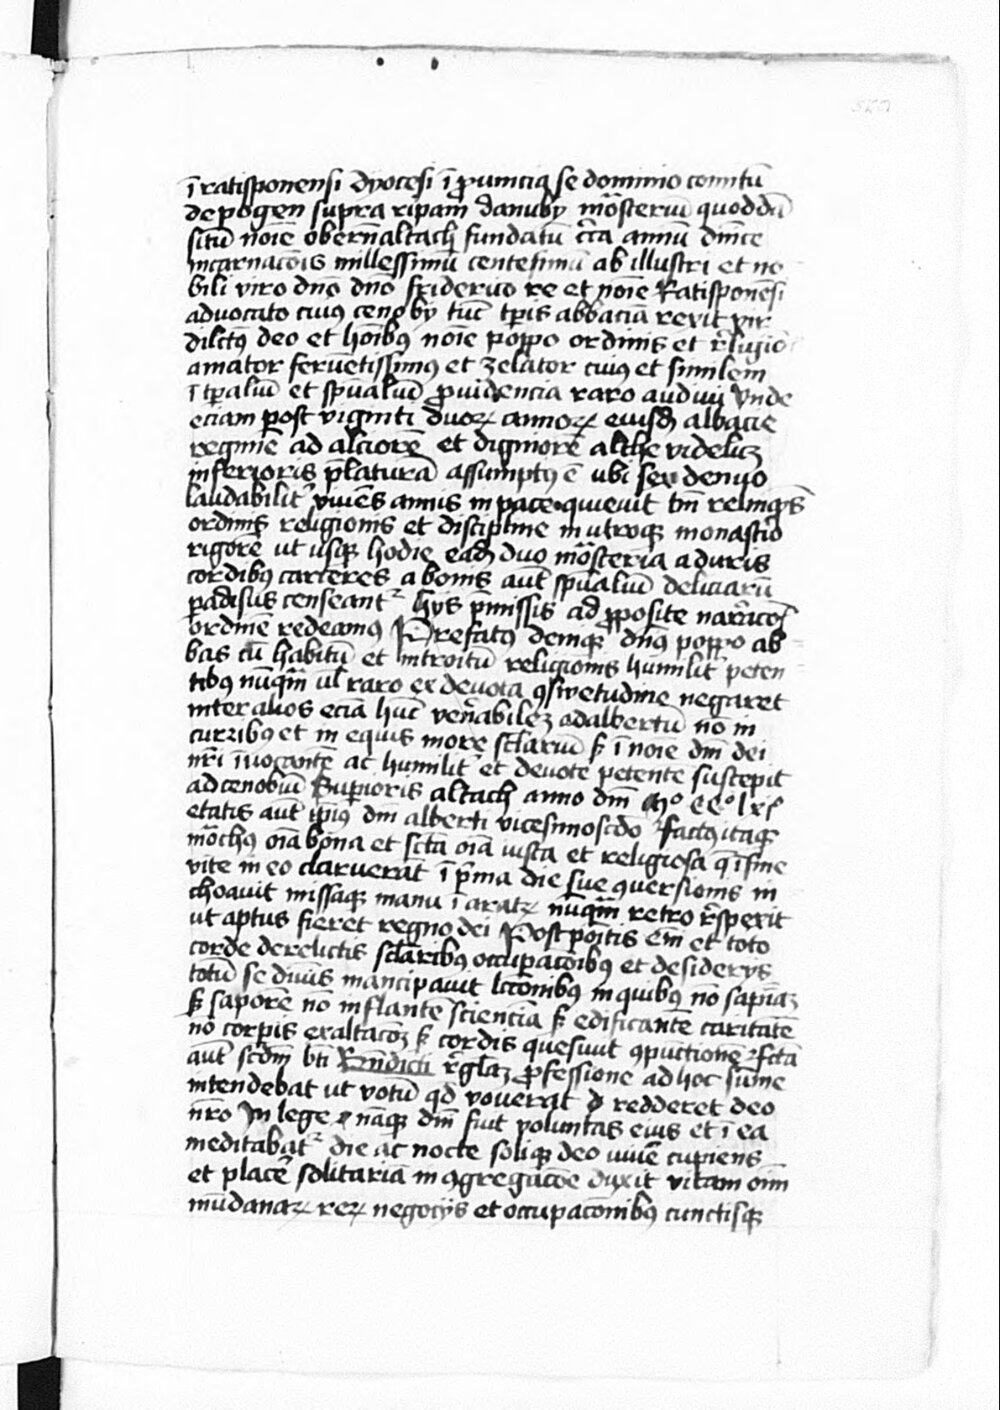 ī ratisponensi dyocesi ī ꝓuincia se dominio comitū
de pogen supra ripam danuby mōsteriū quoddā
sitū noīe obernaltach fundatū cīrca annū dnīce
incarnacōis millessimū centesimū ab illustri et no
bili viro dn̄o dn̄o friderico re et noīe Ratisponēsi
aduocato cuiꝰ cenoby tūc tp̄ris abbaciā rexit vir
dilctꝰ deo et hoībꝰ noīe poppo ordinis et r̄ligio
amator feruētissimꝰ et zelator cuiꝰ et similem
ī tp̄aliū et sp̄ualiū ꝓuidencia raro audiui vnde
eciam post viginti duoꝝ annoꝝ eiusdē abbacie
regimē ad alciorē et digniorē althe videlicꝫ
inferioris p̄laturā assumptꝰ ē vbi sex denuo
laudabilit̾ viuēs annis in pace quieuit tn̄ relinq̄ns
ordinis religionis et discipline in utroqꝫ monast̾io
rigorē ut usqꝫ hodie eadē duo mōsteria a duris
cordibꝰ carceres a bonis aut̄ sp̄ualiū deliciarū
ꝑadisus censeant̾ hys p̄missis ad ꝓposite narr̄acōis
ordinē redeamꝰ Prefatꝰ deniqꝫ dn̄s poppo ab
bas cū habitū et introitū religionis humilit̾ peten
tibꝰ nūqm̄ ul̄ raro ex deuota ꝯswetudine negaret
inter alios eciā hūc ven̄abilē adalbertū nō in
curribꝰ et in equis more sc̄lariū sꝫ ī noīe dn̄i dei
nr̄i īuocantē ac humilit̾ et deuote petentē suscepit
ad cenobiū Suꝑioris altach anno dn̄i Mº CCº lxiº
etatis aut̄ ip̄iꝰ dn̄i alberti vicesimoscdo factꝰ itaqꝫ
mōchꝰ oīa bona et sc̄ta oīa iusta et religiosa q̄ ī fine
vite in eo claruerāt ī p̄ma die sue ꝯuersionis in
choauit missaqꝫ manu ī aratꝝ nūqm̄ retro r̄spexit
ut aptus fieret regno dei Postpoītis em̄ et toto
corde derelictis sc̄laribꝰ occupacōibꝰ et desiderys
totū se diuīs mancipauit lcc̄onibꝰ in quibꝰ nō sapiāꝫ
sꝫ saporē nō inflantē scienciā sꝫ edificantē caritatē
nō corꝑis exaltacōꝫ sꝫ cordis quesiuit ꝯpūctionē fc̄tā
aut̄ scd̄m bt̄i Bn̄dicti r̄glāꝫ ꝓfessione ad hoc sūme
intendebat ut votū qd̄ vouerat redderet deo
nr̄o In lege nāqꝫ dn̄i fuit voluntas eius et ī ea
meditabat̾ die ac nocte soliqꝫ deo viuē cupiens
et placē solitariā in ꝯgregacōe duxit vitam oīm
mūdanaꝝ reꝝ negocys et occupacōnibꝰ cunctisqꝫ